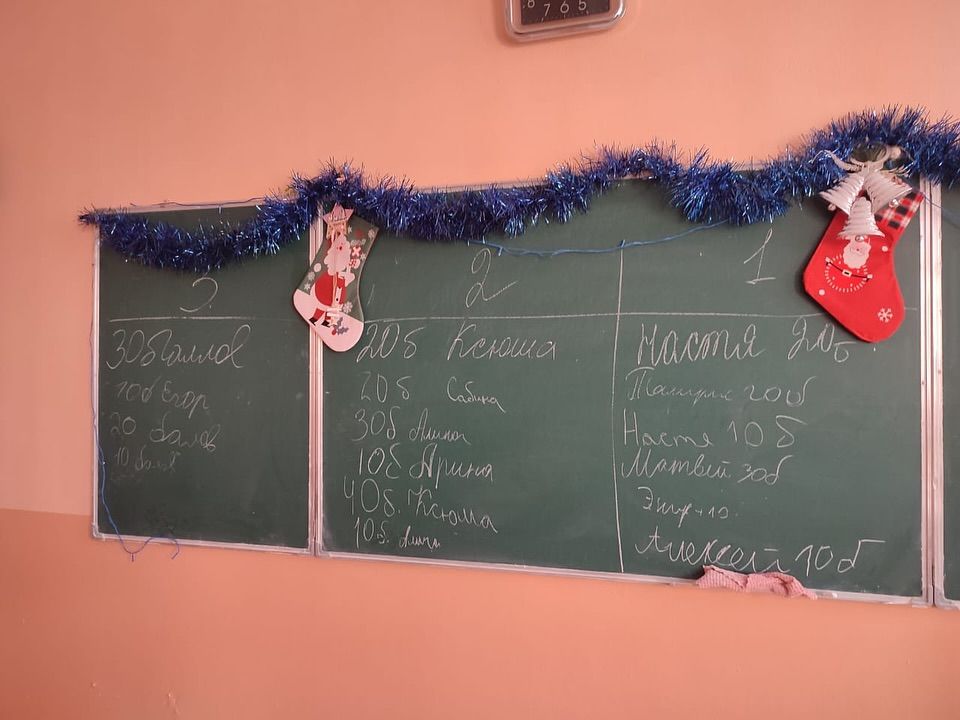 8 7 6 5
3
30 баллов
10б Егор
20 балов
10 балов
2
20б Ксюша
20б Сабина
30б Алина
10б Арина
40б. Ксюша
10б. Алина
1
Настя 20б
20б
Настя 10б
Матвей 30б
+10
Алексей 10б